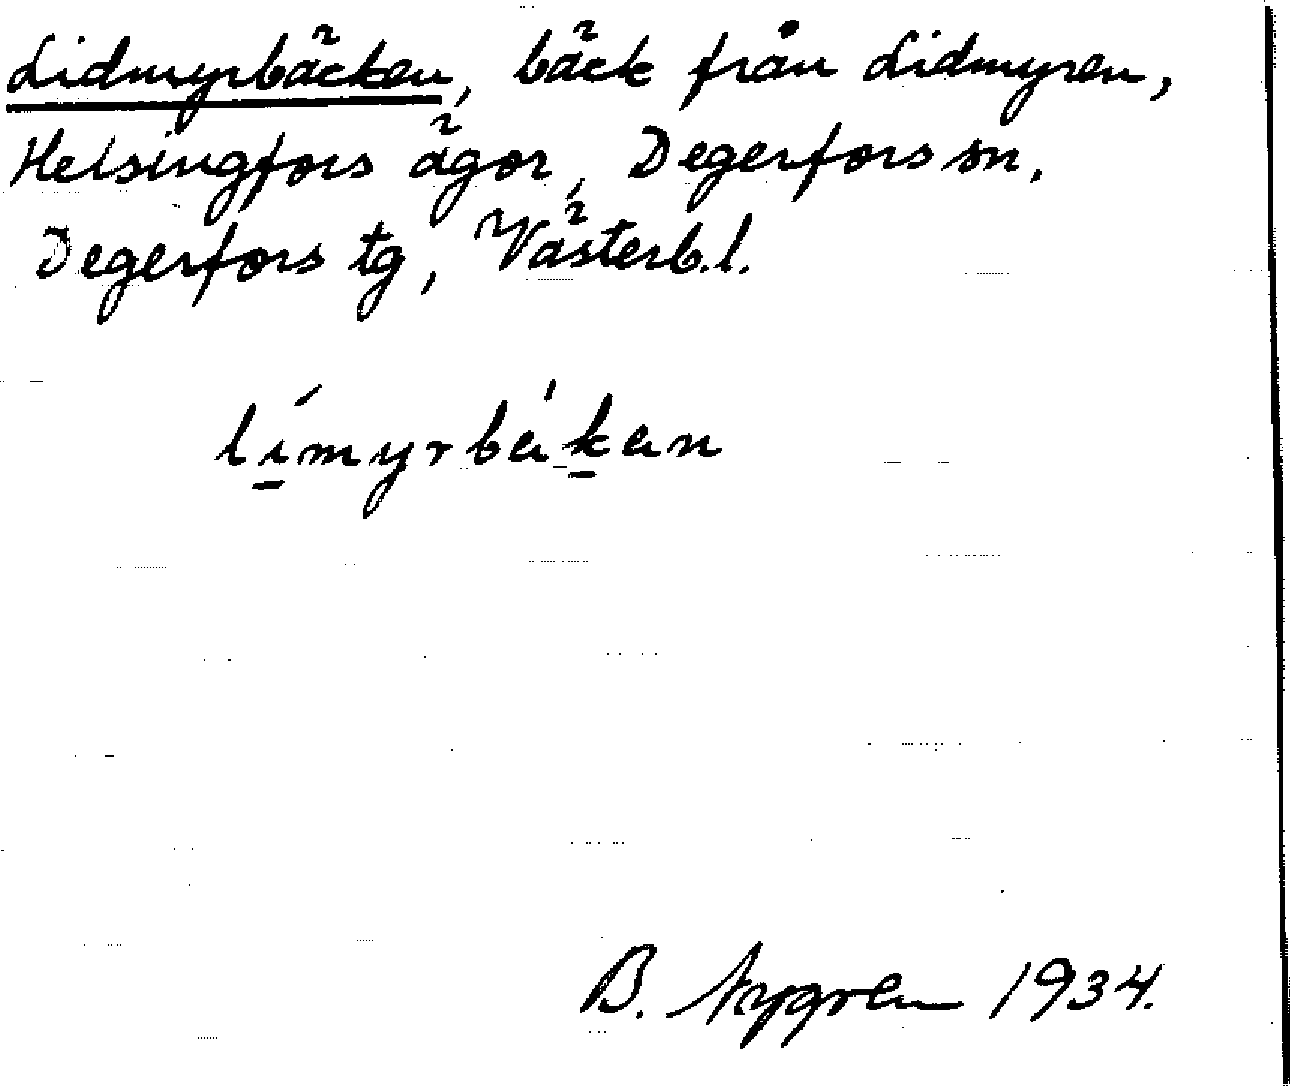 Lidmyrbäcken, bäck från Lidmyren,
Helsingfors ägor, Degerfors sn.
Degerfors tg, Västerb.l.
lí̱myrbäˈḵen
B. Nygren 1934.